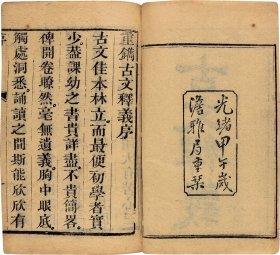 光緒甲午歲
澹雅局重栞
重鐫古文釋義序
古文佳本林立而最便初學者實
少蓋課幼之書貴詳盡不貴簡畧
俾開卷瞭然毫無遺義胸中眼底
觸處洞悉誦讀之間斯能欣欣有